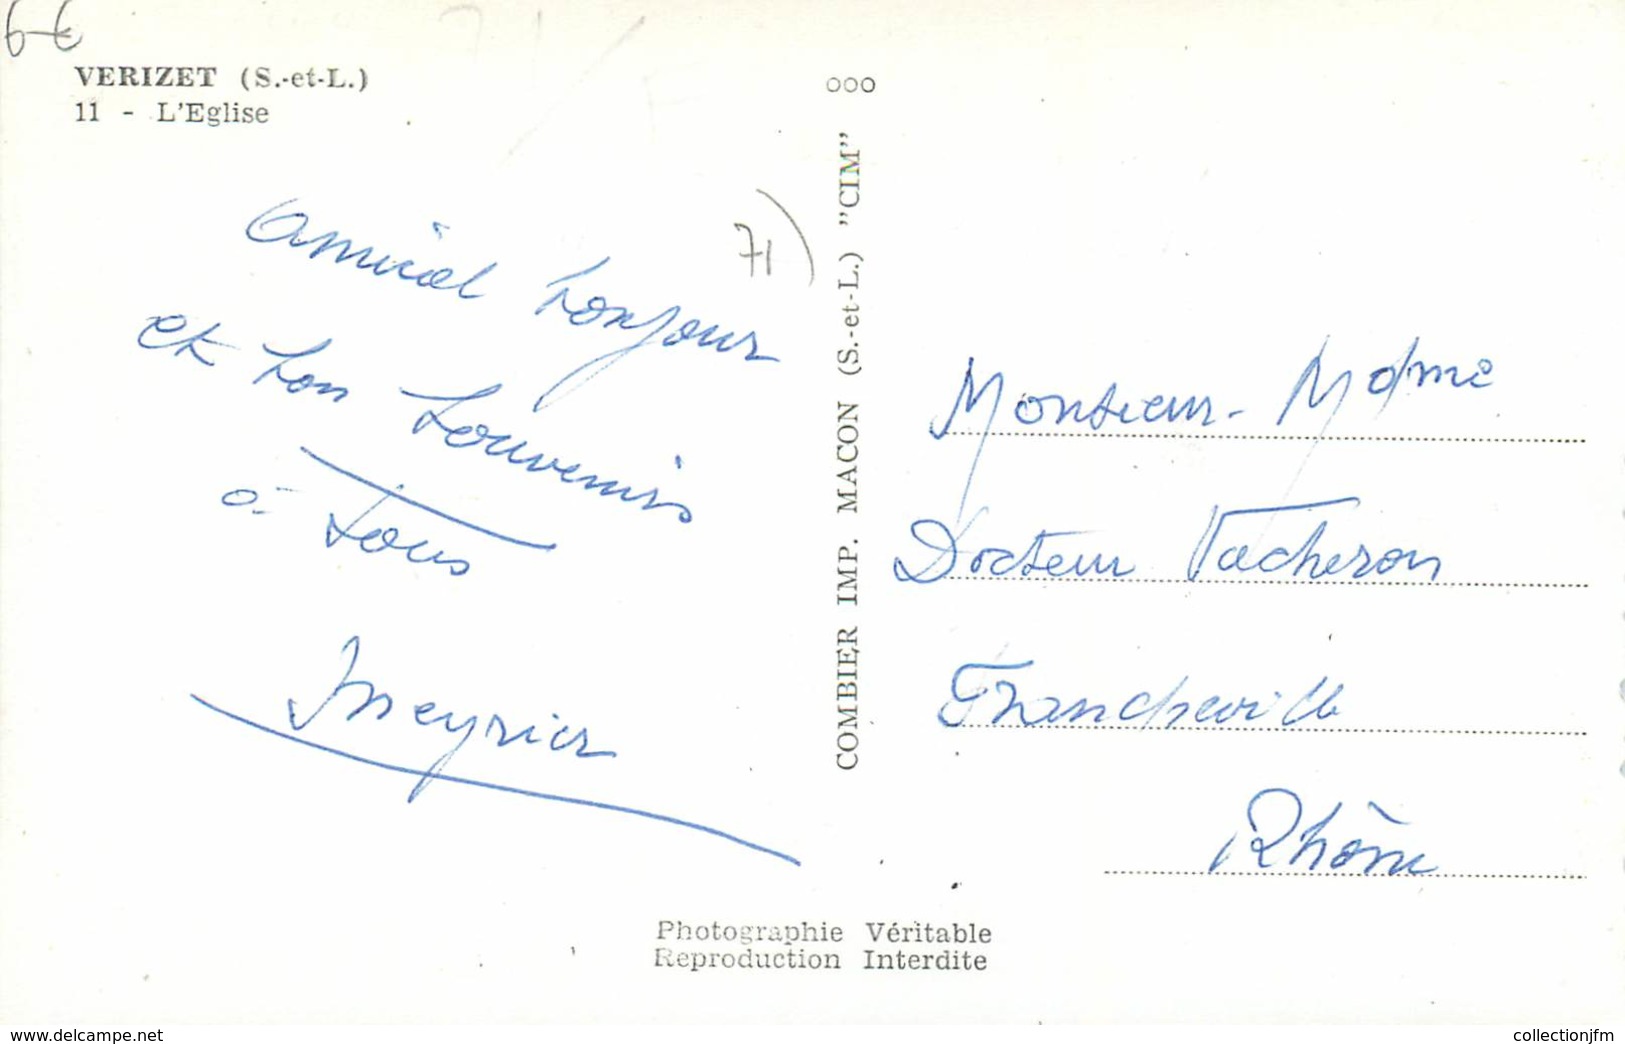 6 €
VERIZET (S.-et-L.)
11 - L'Eglise
000
71
amical bonjour
et bon souvenirs
à tous
Meyrier
COMBIER IMP. MACON (S.-et-L.) "CIM"
Monsieur - Mdme
Docteur Vacheron
Francheville
Rhône
Photographie Véritable
Reproduction Interdite
www.delcampe.net
collectionjfm